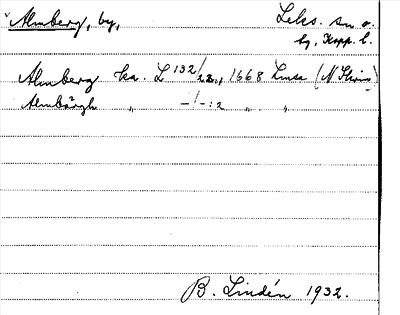 Almberg, by,
Leks. sn o.
lg, Kopp. l.
Almberg ka. L 132/22., 1668 Lmsa (N Skoog)
Almbärgh " -/-:2 " "
B. Lindén 1932.